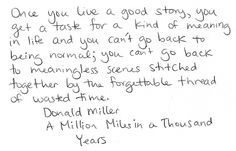 Once you live a good story, you
get a taste for a kind of meaning
in life and you can't go back to
being normal; you can't go back
to meaningless scenes stitched
together by the forgettable thread
of wasted time.
Donald Miller
A Million Miles in a Thousand
Years